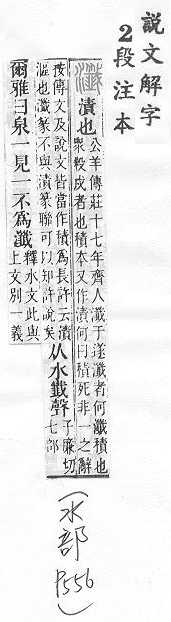 説文解字
2段注本
瀸 漬也
公羊傳莊十七年齊人瀸于遂瀸者何瀸積也
衆殺戍者也積本又作漬何曰積死非一之辭
按傳文及說文皆當作積為長許云漬
漚也瀸篆不與漬篆聯可以知許說矣
从水韱聲
子廉切
七部
爾雅曰泉一見一不為瀸
釋水文此與
上文別一義
(水部 P556)